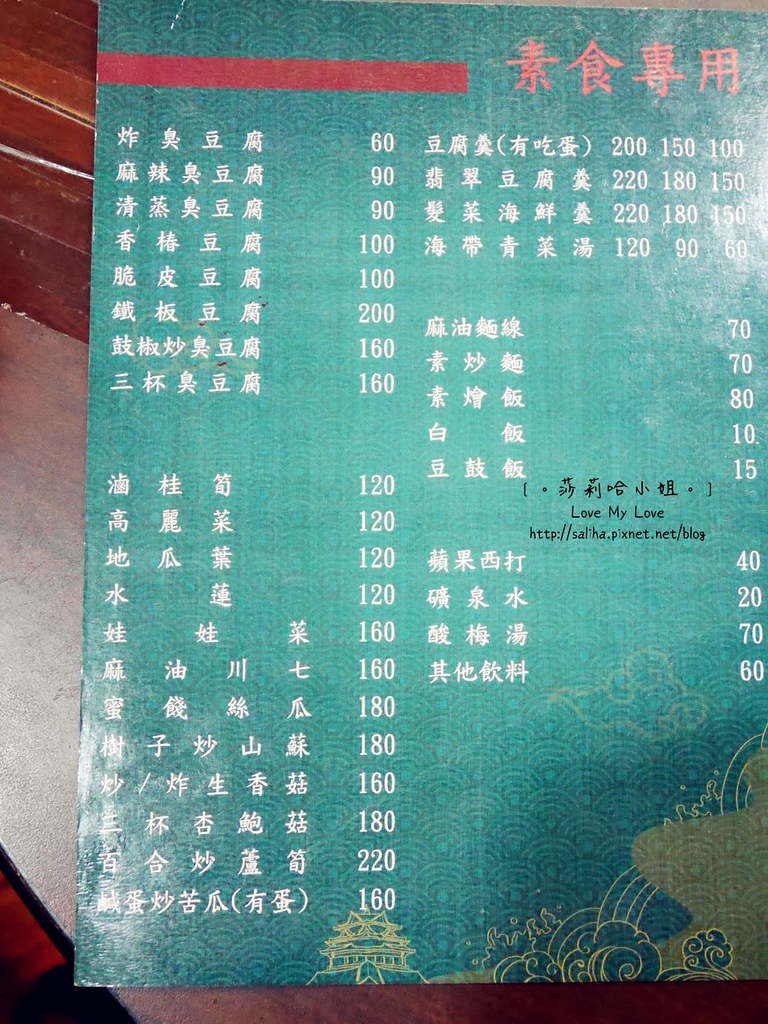 素食專用
炸臭豆腐 60
麻辣臭豆腐 90
清蒸臭豆腐 90
香椿豆腐 100
脆皮豆腐 100
鐵板豆腐 200
鼓椒炒臭豆腐 160
三杯臭豆腐 160
滷桂筍 120
高麗菜 120
地瓜葉 120
水蓮 120
娃娃菜 160
麻油川七 160
蜜餞絲瓜 180
樹子炒山蘇 180
炒/炸生香菇 160
三杯杏鮑菇 180
百合炒蘆筍 220
鹹蛋炒苦瓜(有蛋) 160
豆腐羹(有吃蛋) 200 150 100
翡翠豆腐羹 220 180 150
髮菜海鮮羹 220 180 150
海帶青菜湯 120 90 60
麻油麵線 70
素炒麵 70
素燴飯 80
白飯 10
豆鼓飯 15
〔。莎莉哈小姐。〕
Love My Love
http://saliha.pixnet.net/blog
蘋果西打 40
礦泉水 20
酸梅湯 70
其他飲料 60